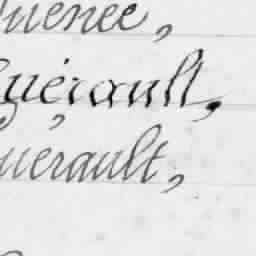 Quenée,
Guérault,
Guérault,